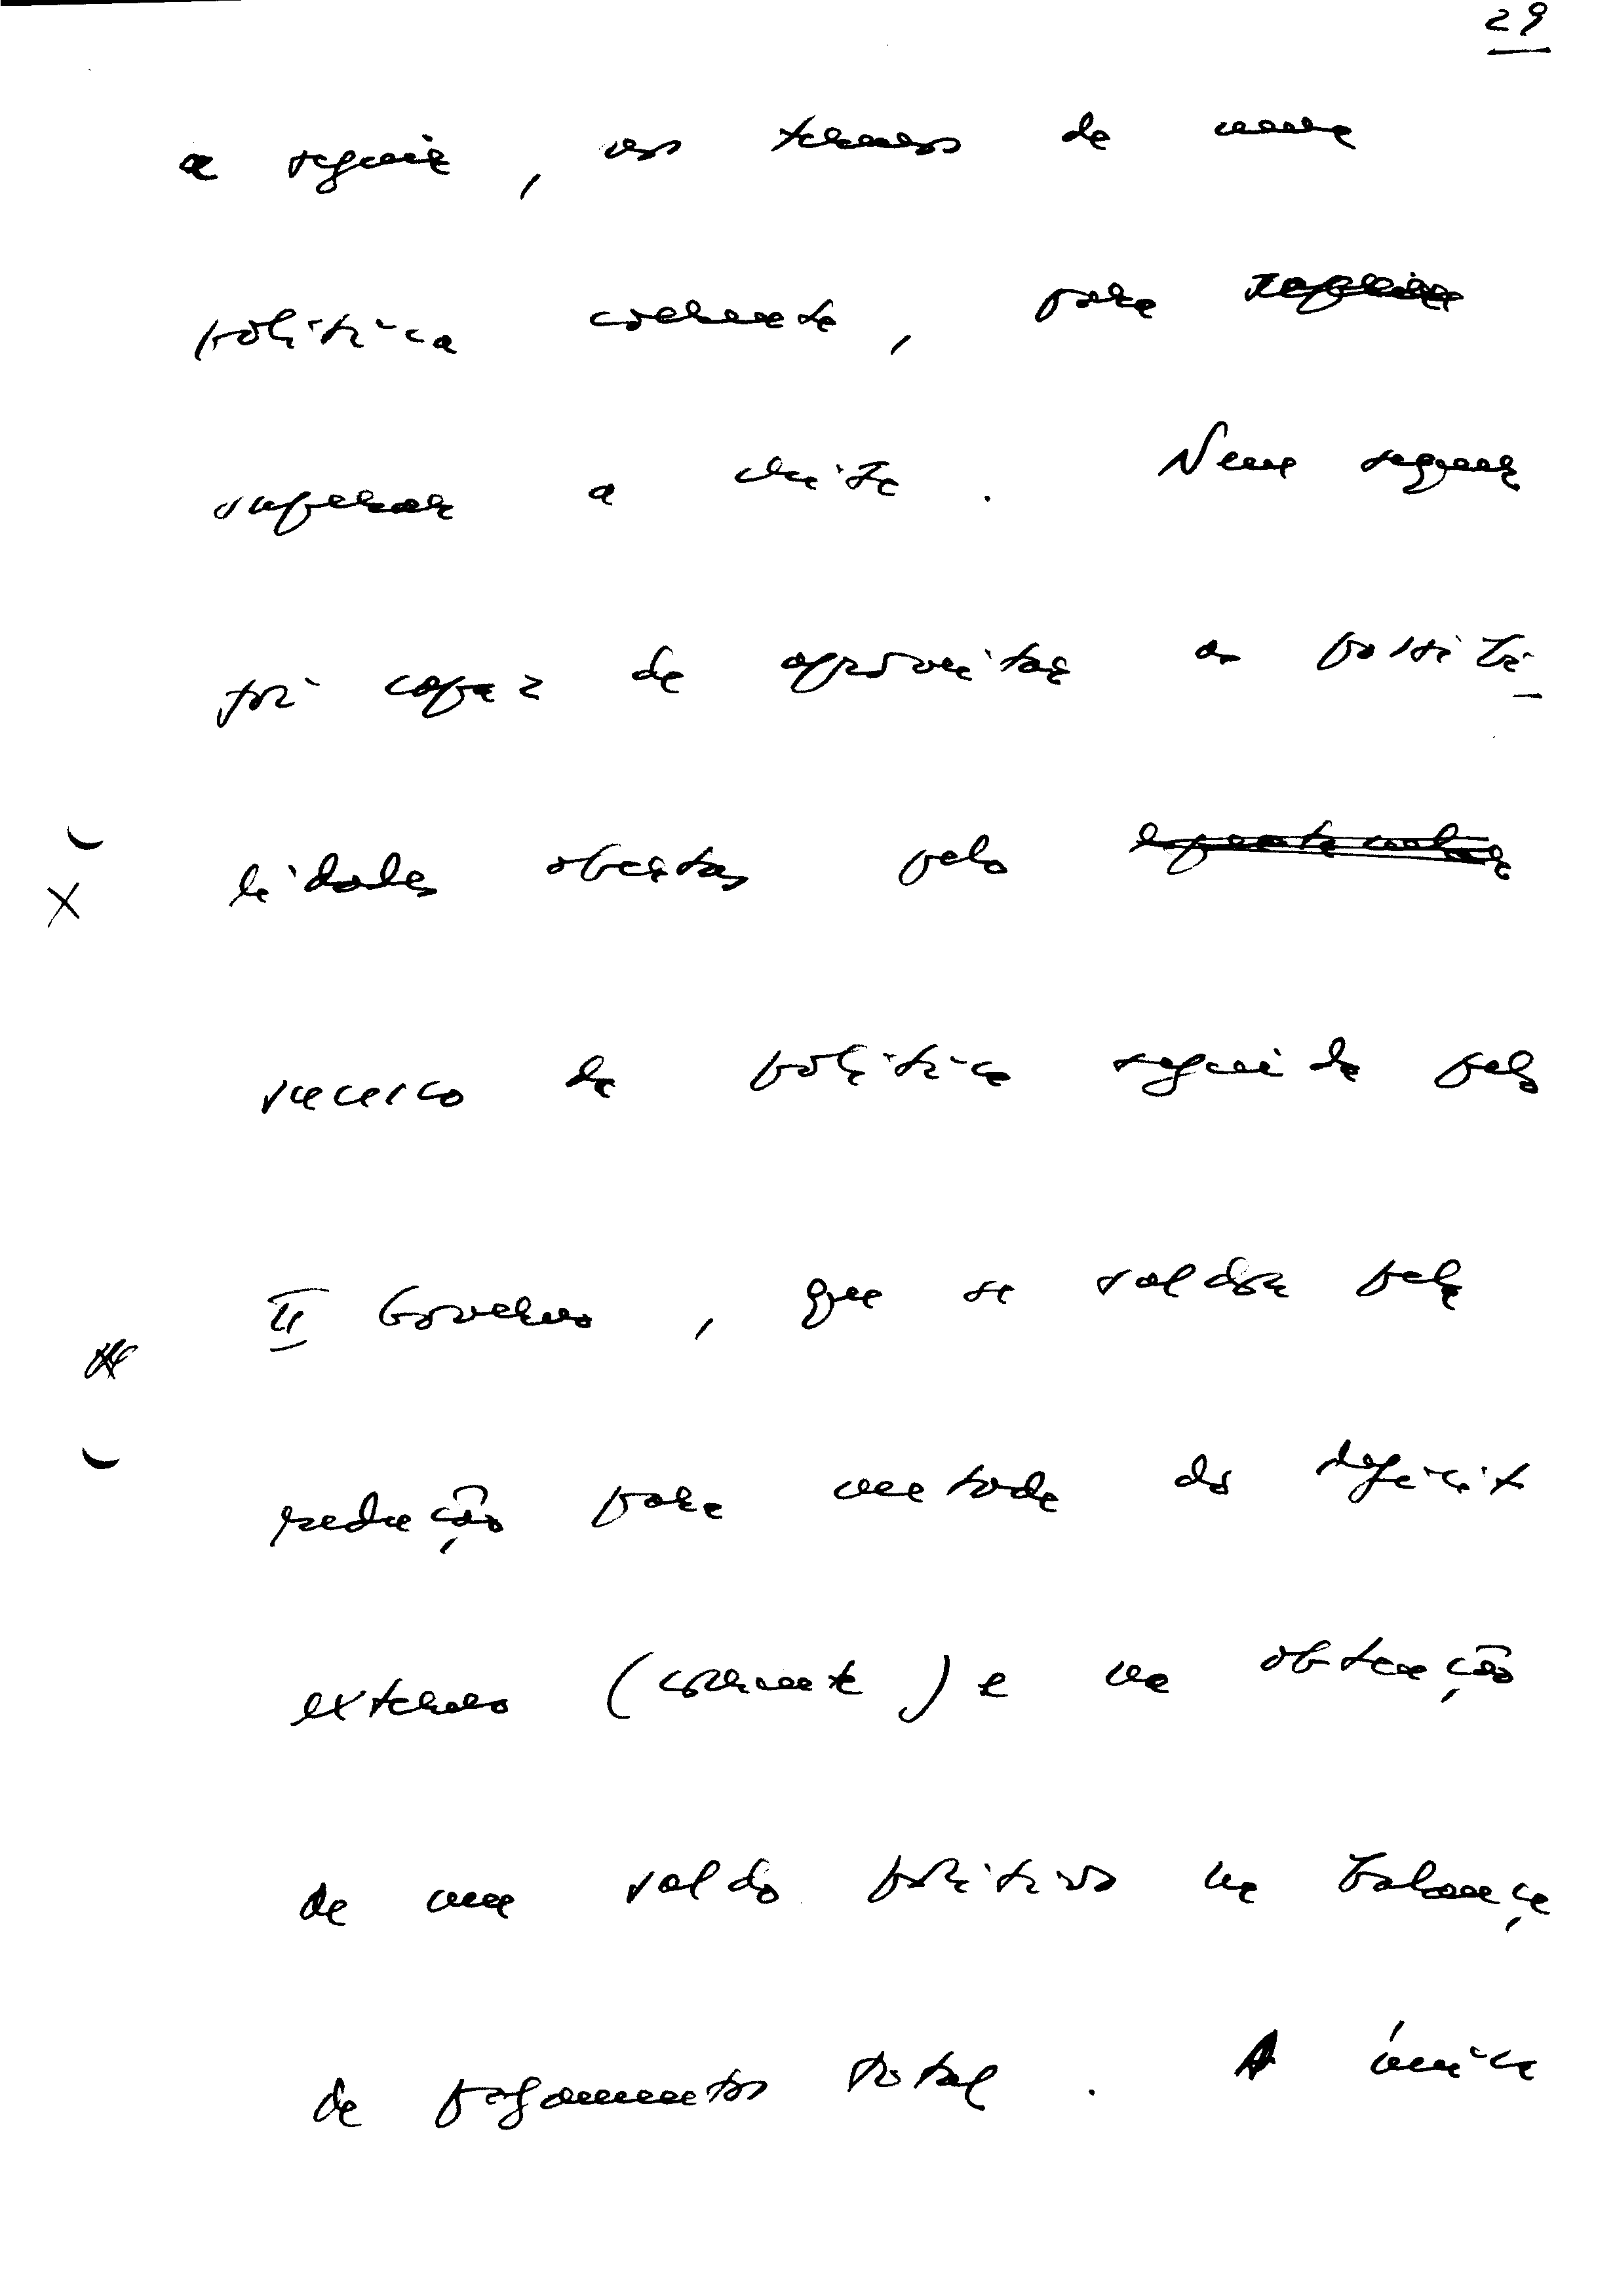 29
a seguir, nos termos de uma
política coerente, para
superar a crise. Nem sequer
foi capaz de aproveitar as possibi-
lidades abertas pelo
sucesso da política seguida pelo
II Governo, que se saldou pela
redução para metade do deficit
externo (corrente) e na obtenção
de um saldo positivo na balança
de pagamentos total. A única